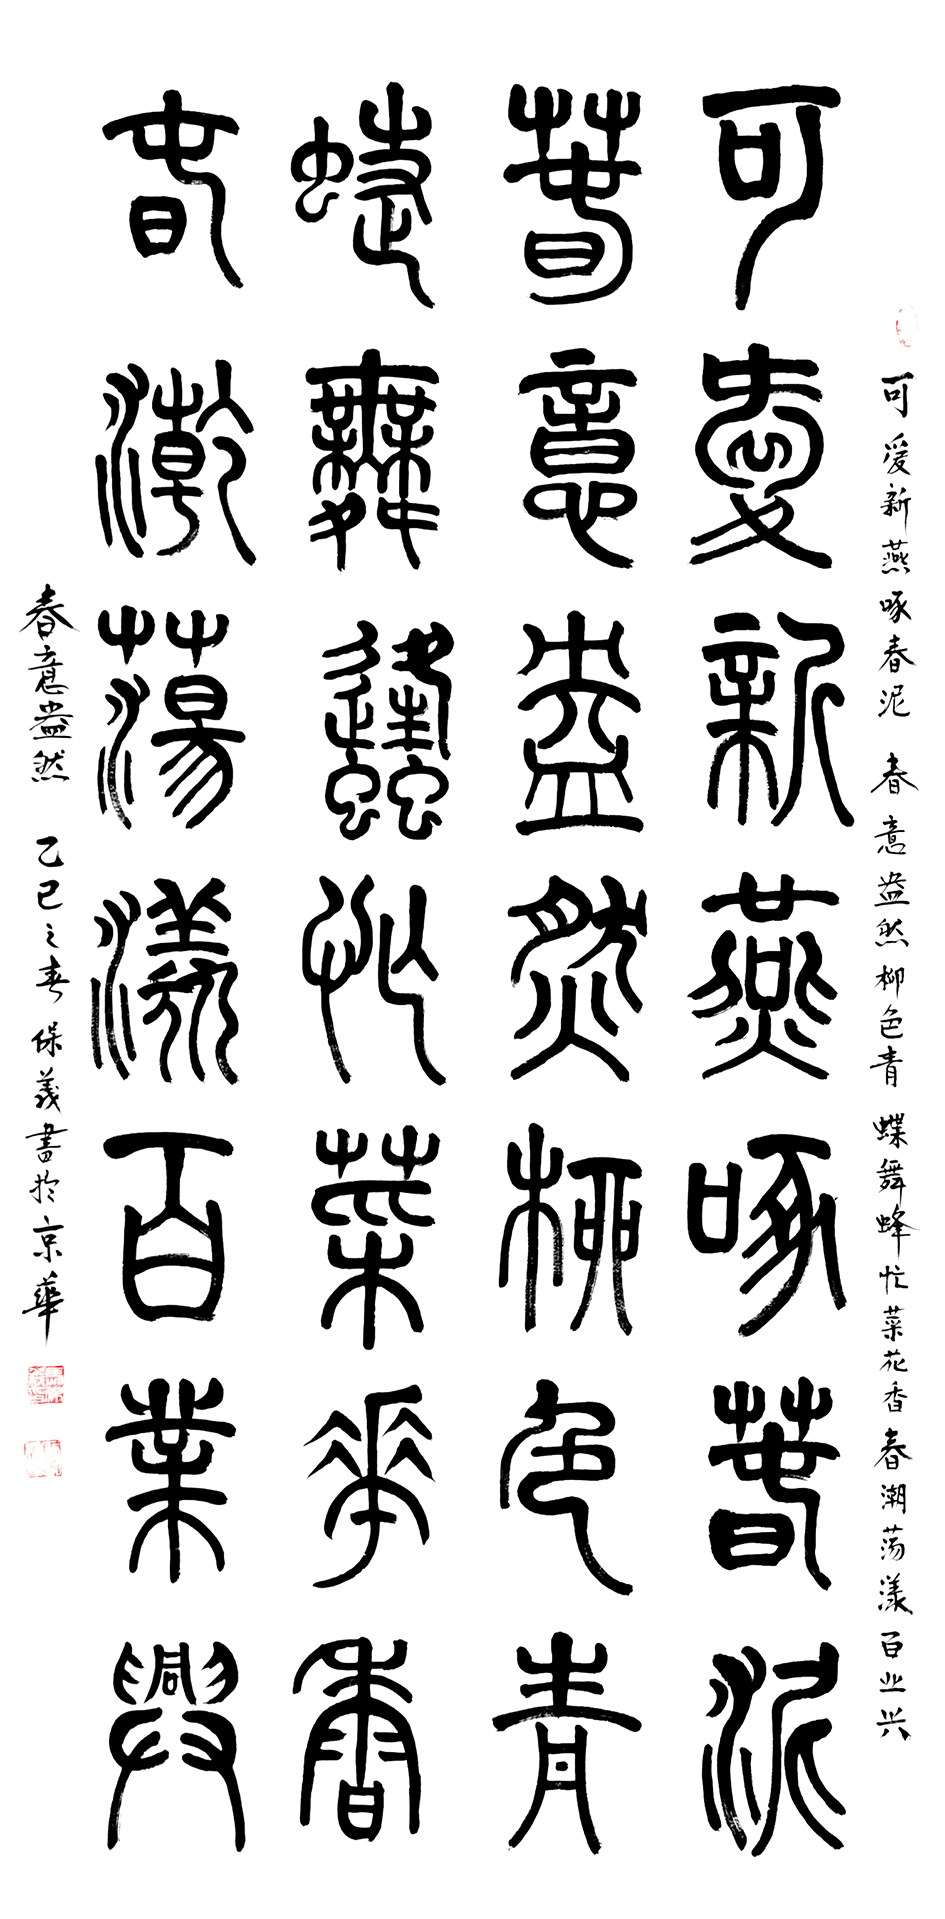 可爱新燕啄春泥 春意盎然柳色青 蝶舞蜂忙菜花香 春潮荡漾百业兴
可愛新燕啄春泥
春意盎然柳色青
蜨舞蠭忙菜花香
春潮蕩漾百業興
春意盎然 乙巳之春 保義書於京華